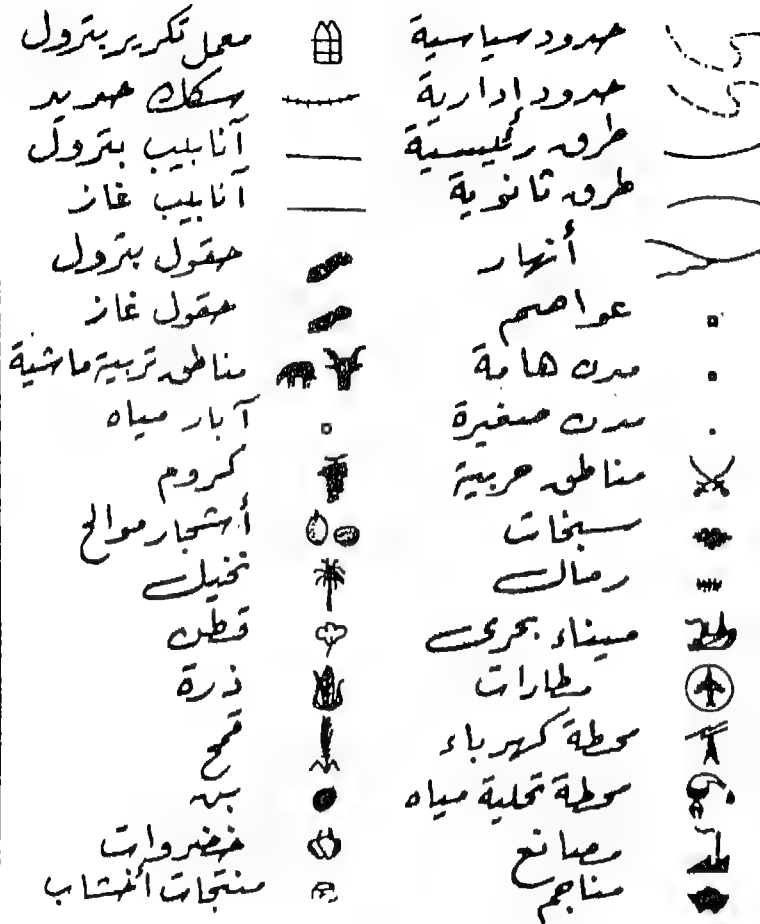 حدود سياسية
حدود إدارية
طرق رئيسية
طرق ثانوية
أنهار
عواصم
مدن هامة
مدن صغيرة
مناطق حربية
سبخات
رمال
ميناء بحرى
مطارات
محطة كهرباء
محطة تحلية مياه
مصانع
مناجم
معمل تكرير بترول
سكك حديد
آنابيب بترول
آنابيب غاز
حقول بترول
حقول غاز
مناطق تربية ماشية
آبار مياه
كروم
أشجار موالح
نخيل
قطن
ذرة
قمح
بن
خضروات
منتجات أخشاب